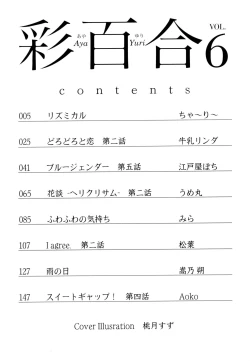 彩百合 VOL. 6
あや ゆり
Aya Yuri
contents
005 リズミカル ちゃ〜り〜
025 どろどろと恋 第二話 牛乳リンダ
041 ブルージェンダー 第五話 江戸屋ぽち
065 花談 -ヘリクリサム- 第二話 うめ丸
085 ふわふわの気持ち みら
107 I agree. 第二話 松葉
127 雨の日 嵩乃朔
147 スイートギャップ！ 第四話 Aoko
Cover Illusration 桃月すず